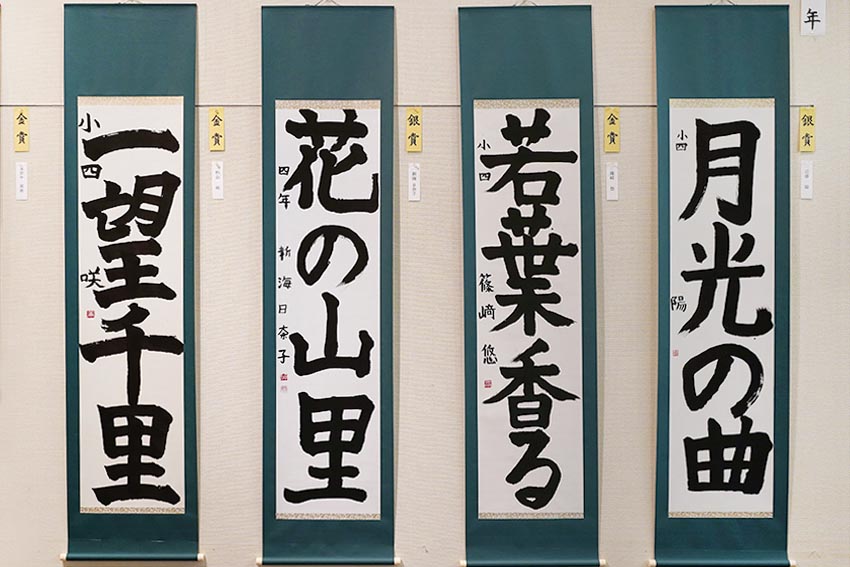 年
銀賞
月光の曲
小四
陽
金賞
若葉香る
小四
篠﨑 悠
銀賞
花の山里
四年 新海日奈子
金賞
一望千里
小四
咲
金賞